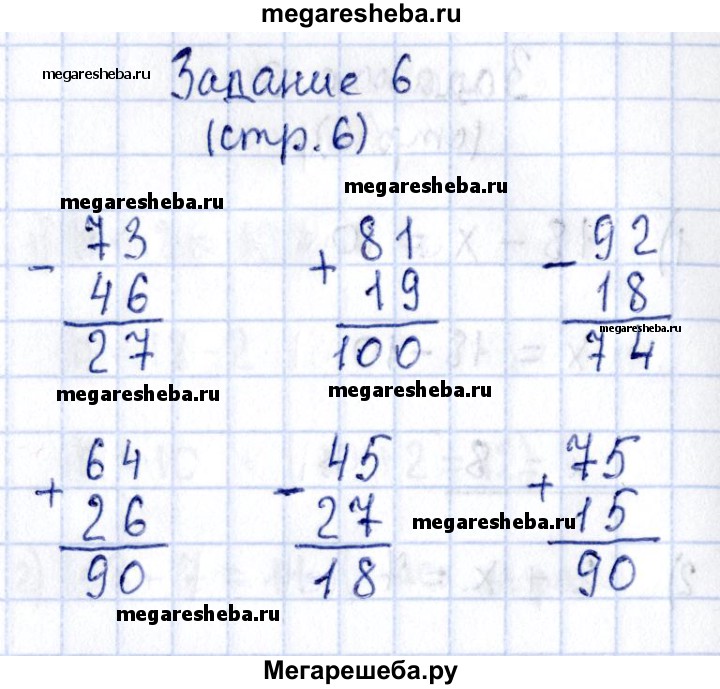 megaresheba.ru
megaresheba.ru
Задание 6
(стр. 6)
megaresheba.ru
megaresheba.ru
73 81 92
- + -
46 19 18
megaresheba.ru
27 100 74
megaresheba.ru
megaresheba.ru
64 45 75
+ - +
26 27 15
megaresheba.ru
90 18 90
megaresheba.ru
Мегарешеба.ру